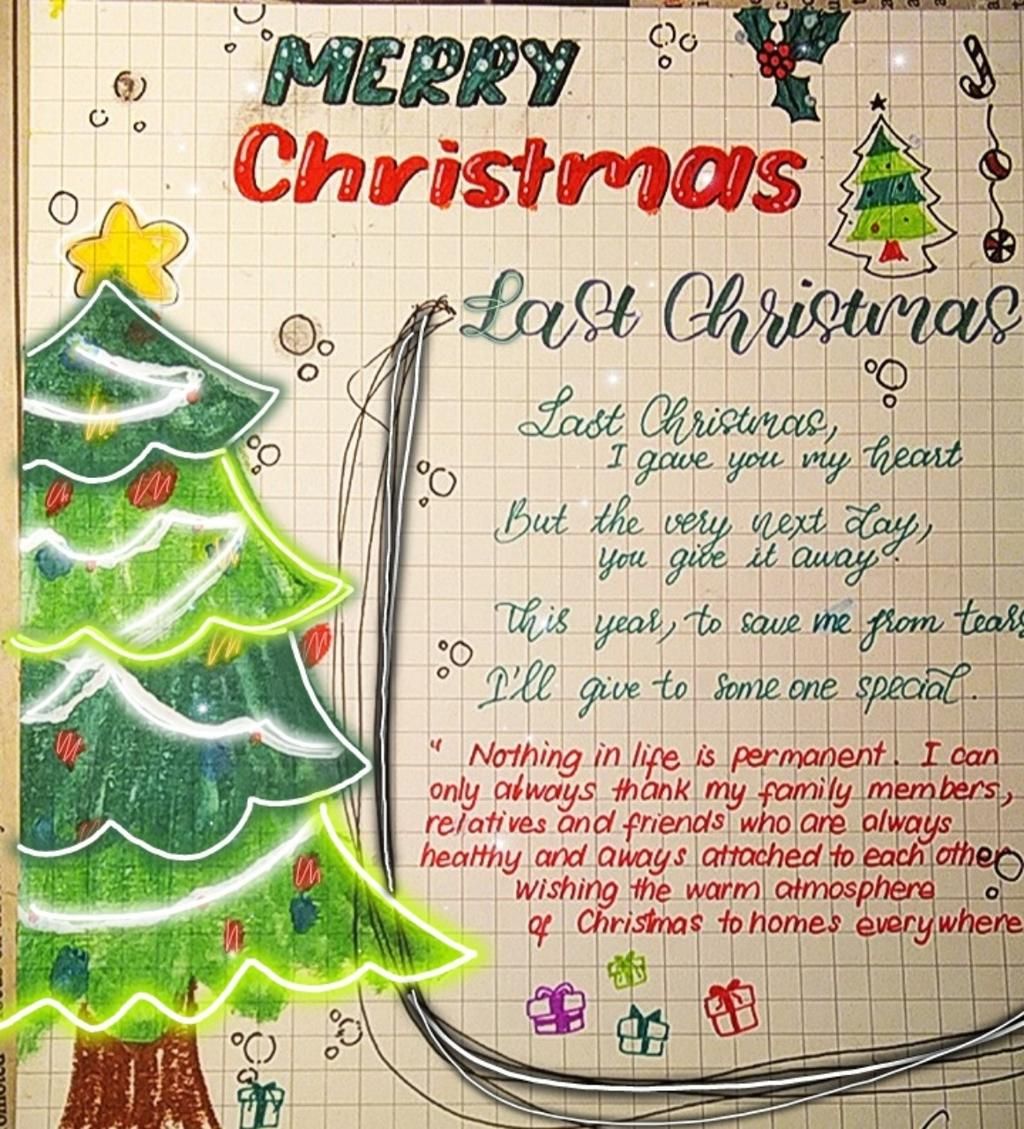 MERRY
Christmas
Last Christmas
Last Christmas,
I gave you my heart
But the very next day,
you give it away.
This year, to save me from tears
I'll give to some one special.
" Nothing in life is permanent. I can
only always thank my family members,
relatives and friends who are always
healthy and aways attached to each other
wishing the warm atmosphere
of Christmas to homes everywhere